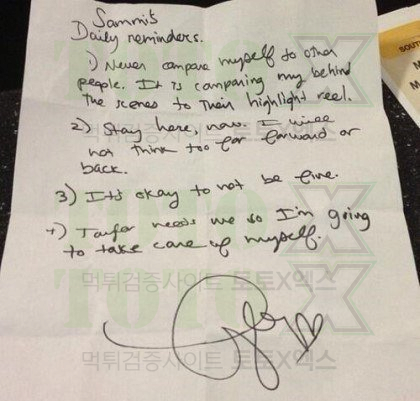 Sammi's
Daily reminders.
1) Never compare myself to other
people. It is comparing my behind
the scenes to their highlight reel.
2) Stay here, now. I will
not think too far forward or
back.
3) It's okay to not be fine.
4) Taylor needs me so I'm going
to take care of myself.
SOUT
TOTO X
먹튀검증사이트 토토X엑스
TOTO X
먹튀검증사이트 토토X엑스